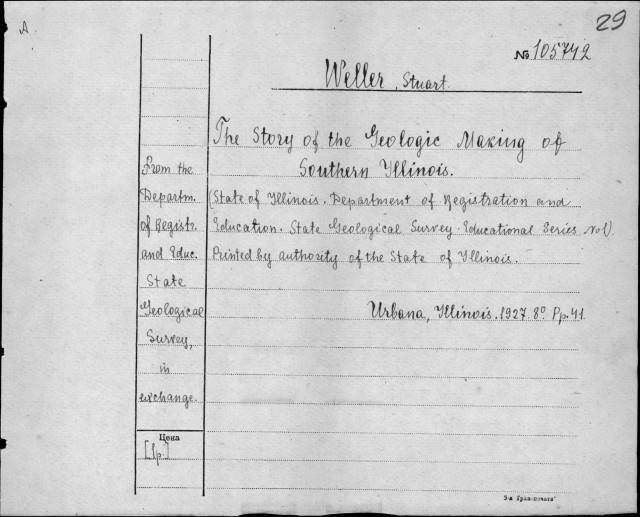 A
29
№ 105742
Weller, Stuart.
The Story of the Geologic Making of
Southern Illinois.
(State of Illinois. Department of Registration and
Education. State Geological Survey. Educational Series No 1)
Printed by authority of the State of Illinois.
Urbana, Illinois. 1927. 8º. Pp. 41.
From the
Departm.
of Registr.
and Educ.
State
Geological
Survey,
in
exchange.
Цена